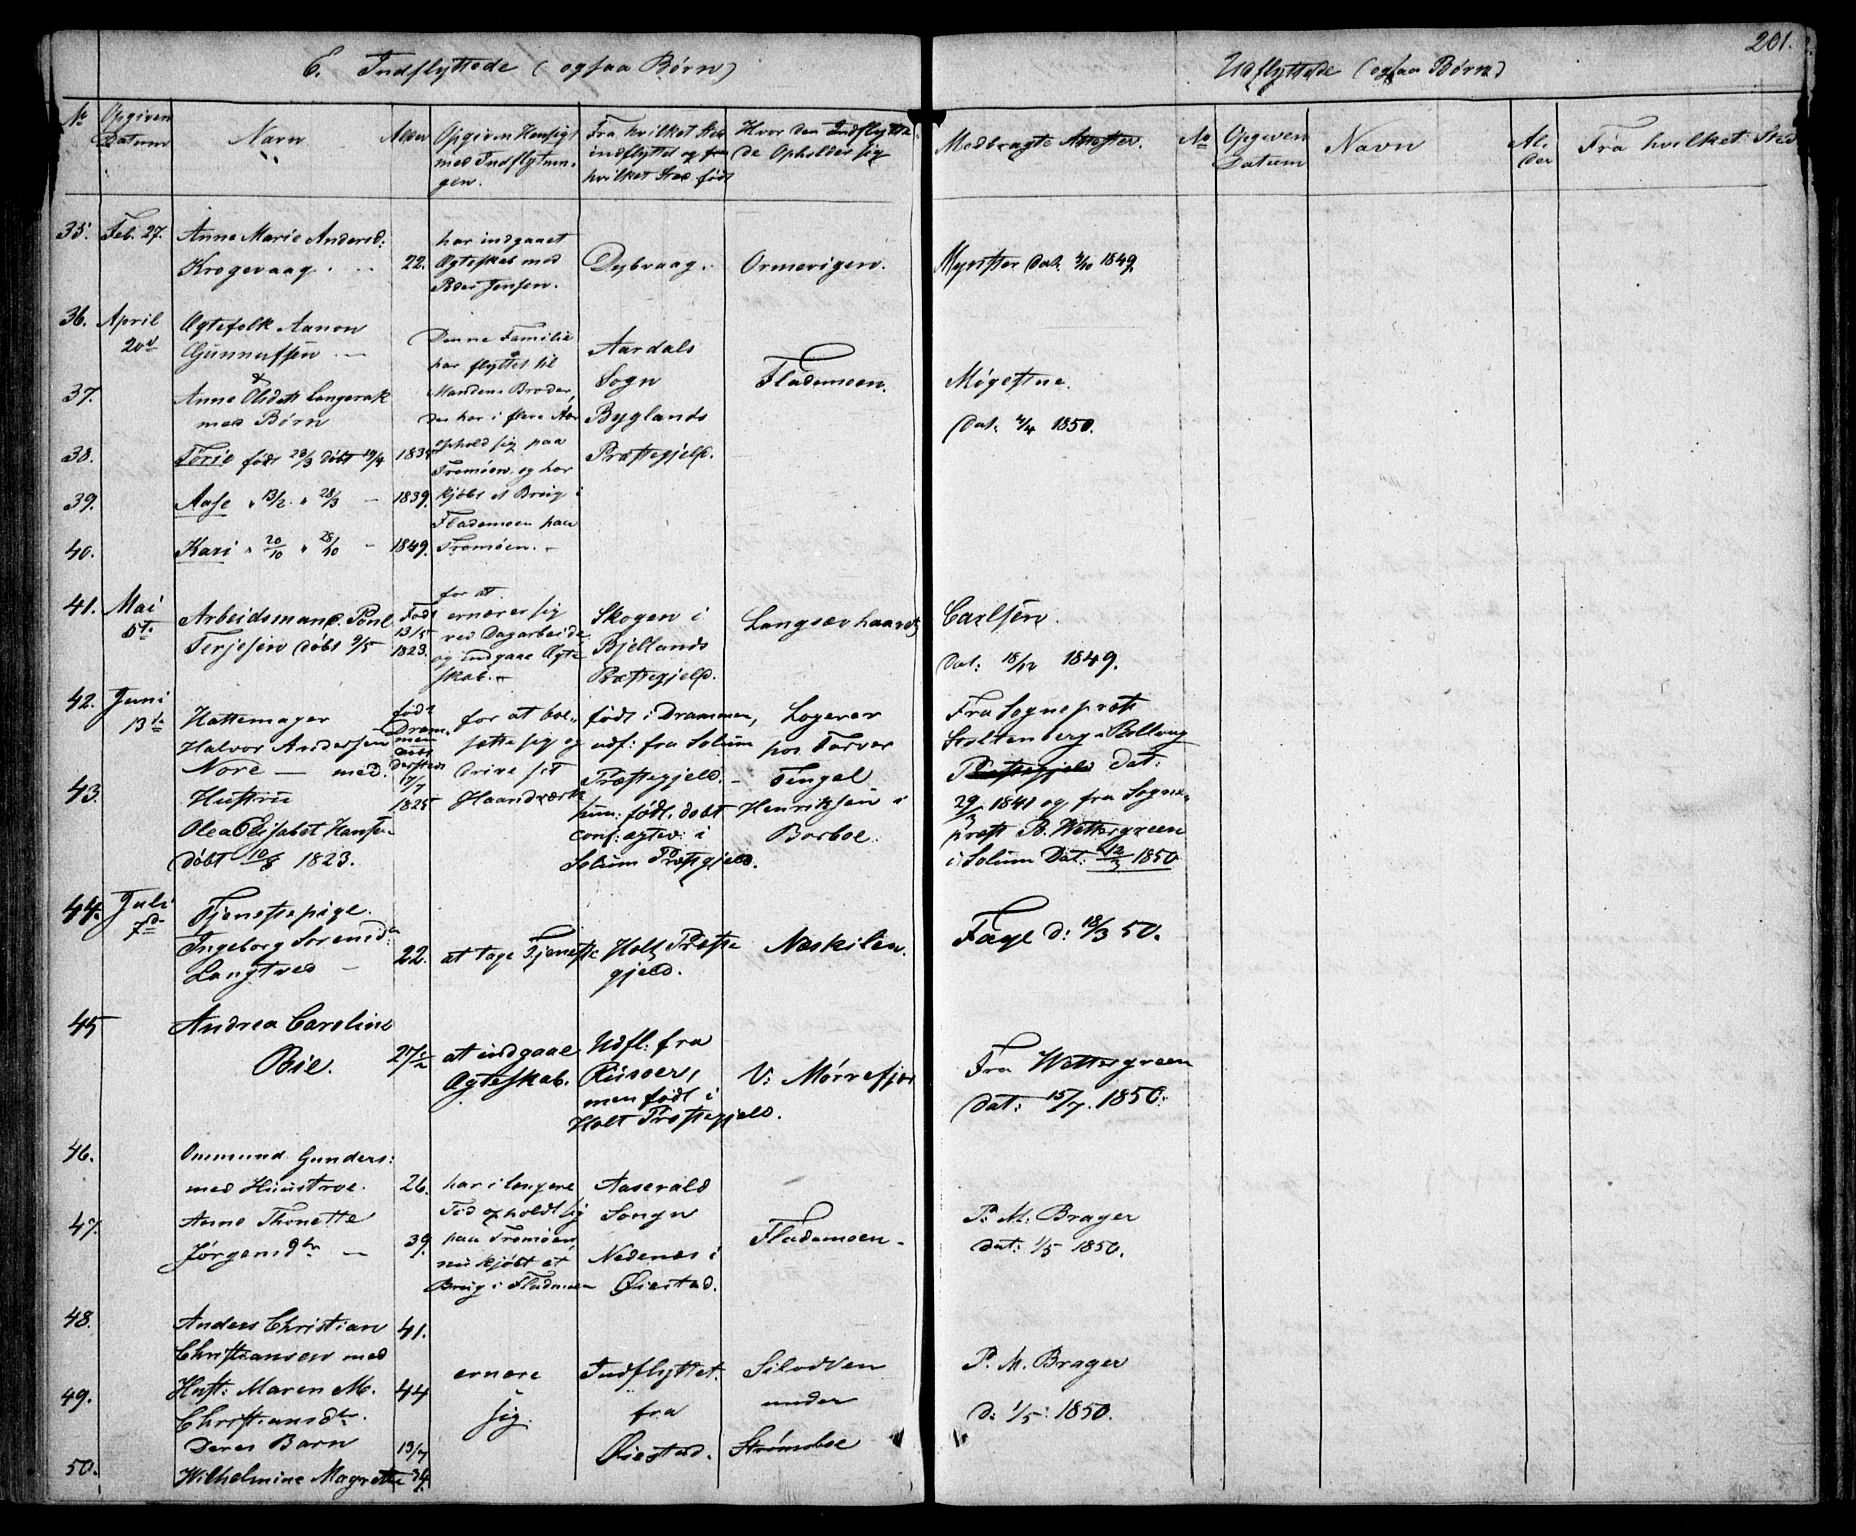 201.
E. Indflyttede (ogsaa Børn)
Udflyttede (ogsaa Børn)
No Opgiven Datum
Navn
Alder
Opgiven Hensigt med Indflytningen.
Fra hvilket Sted indflyttet og fra hvilket Sted født
Hvor den Indflyttede Opholder sig
Medbragte Attester.
No
Opgiven Datum
Navn
Alder
Fra hvilket Sted
35. Feb. 27.
Anne Marie Andersd:
Krogevaag.
22.
har indgaaet
Ægteskab med
Peder Jensen.
Dybvaag.
Ormevigen.
Mynster dat. 1849.
36. April 20d
Ægtefolk Aanon
Gunnufsen
37.
&
Anne Olsdatt Langerak
med Børn
38.
Torie født 23/3 døbt 19/4 1835
39.
Aase " 13/2 " 28/3 - 1839.
40.
Kari " 20/10 " 28/10 - 1849.
Denne Familie
har flyttet til
Mandens Broder,
der har i flere Aar
ophold sig paa
Tromøen og har
kjøbt et Brug i
Flademoen paa
Tromøen.
Aardals
Sogn
Byglands
Præstegjeld.
Flademoen.
Møgestue.
dat. 1850.
41. Mai 5te
Arbeidsmand Poul
Terjesen døbt 9/5
Født
13/5
1823.
for at
ernærer sig
ved Dagarbeide
og indgaae Ægte
skab.
Skogen i
Bjellands
Præstegjeld.
Langsævhaard
Carlsen.
Dat: 18/12 1849.
42. Juni 13de
Hattemager
Halvor Andersen
Nore - med.
43.
Hustru
Olea Elisabet Hansd.
døbt 10/8 1823.
født
Drammen
døbt
dersteds
7/7
1825
for at bo-
sætte sig og
drive sit
Haandværk
født i Drammen,
udf: fra Solum
Præstegjeld.
hun: født, døbt
conf: ægtev: i
Solum Præstgjeld.
Logerer
hos Farver
Tengel
Henriksen i
Barboe.
Fra Sognepræst
Stoltenberg i Rollaug
Præstegjeld dat:
1841 og fra Sogne-
præst B. Wettergreen
i Solum Dat: 12/3 1850
44. Juli 7d
Tjenestepige.
Ingeborg Sørensd
Langtved
22.
at tage Tjeneste
Holt Præste
gjeld.
Næskilen.
Faye d: 18/3 50.
45
Andrea Caroline
Bie.
27 1/2
at indgaae
Ægteskab.
Udfl: fra
Riisøer,
men født i
Holt Præstegjeld.
V: Mørrefjær
Fra Wettergreen
dat: 15/7. 1850.
46.
Ommund Gunders:
med Huustroe.
26.
47.
Anne Thonette
Jørgensdtr
39.
har i længere
Tid opholdt sig
paa Tromøen,
nu kjøbt et
Brug i Flademoen
Aaserald
Songn
Nedenæs i
Øiestad.
Flademoen.
P. M. Brager
dat: 1/5 1850.
48.
Anders Christian
Christiansen med
41.
49.
Hust: Maren M.
Christiansdtr.
44
50.
Deres Barn
Wilhelmine Magrethe
13/7
34.
ernære
sig.
Indflyttet.
fra
Øiestad.
Silodden
under
Strømsboe
P. M. Brager
d: 1/5: 1850.